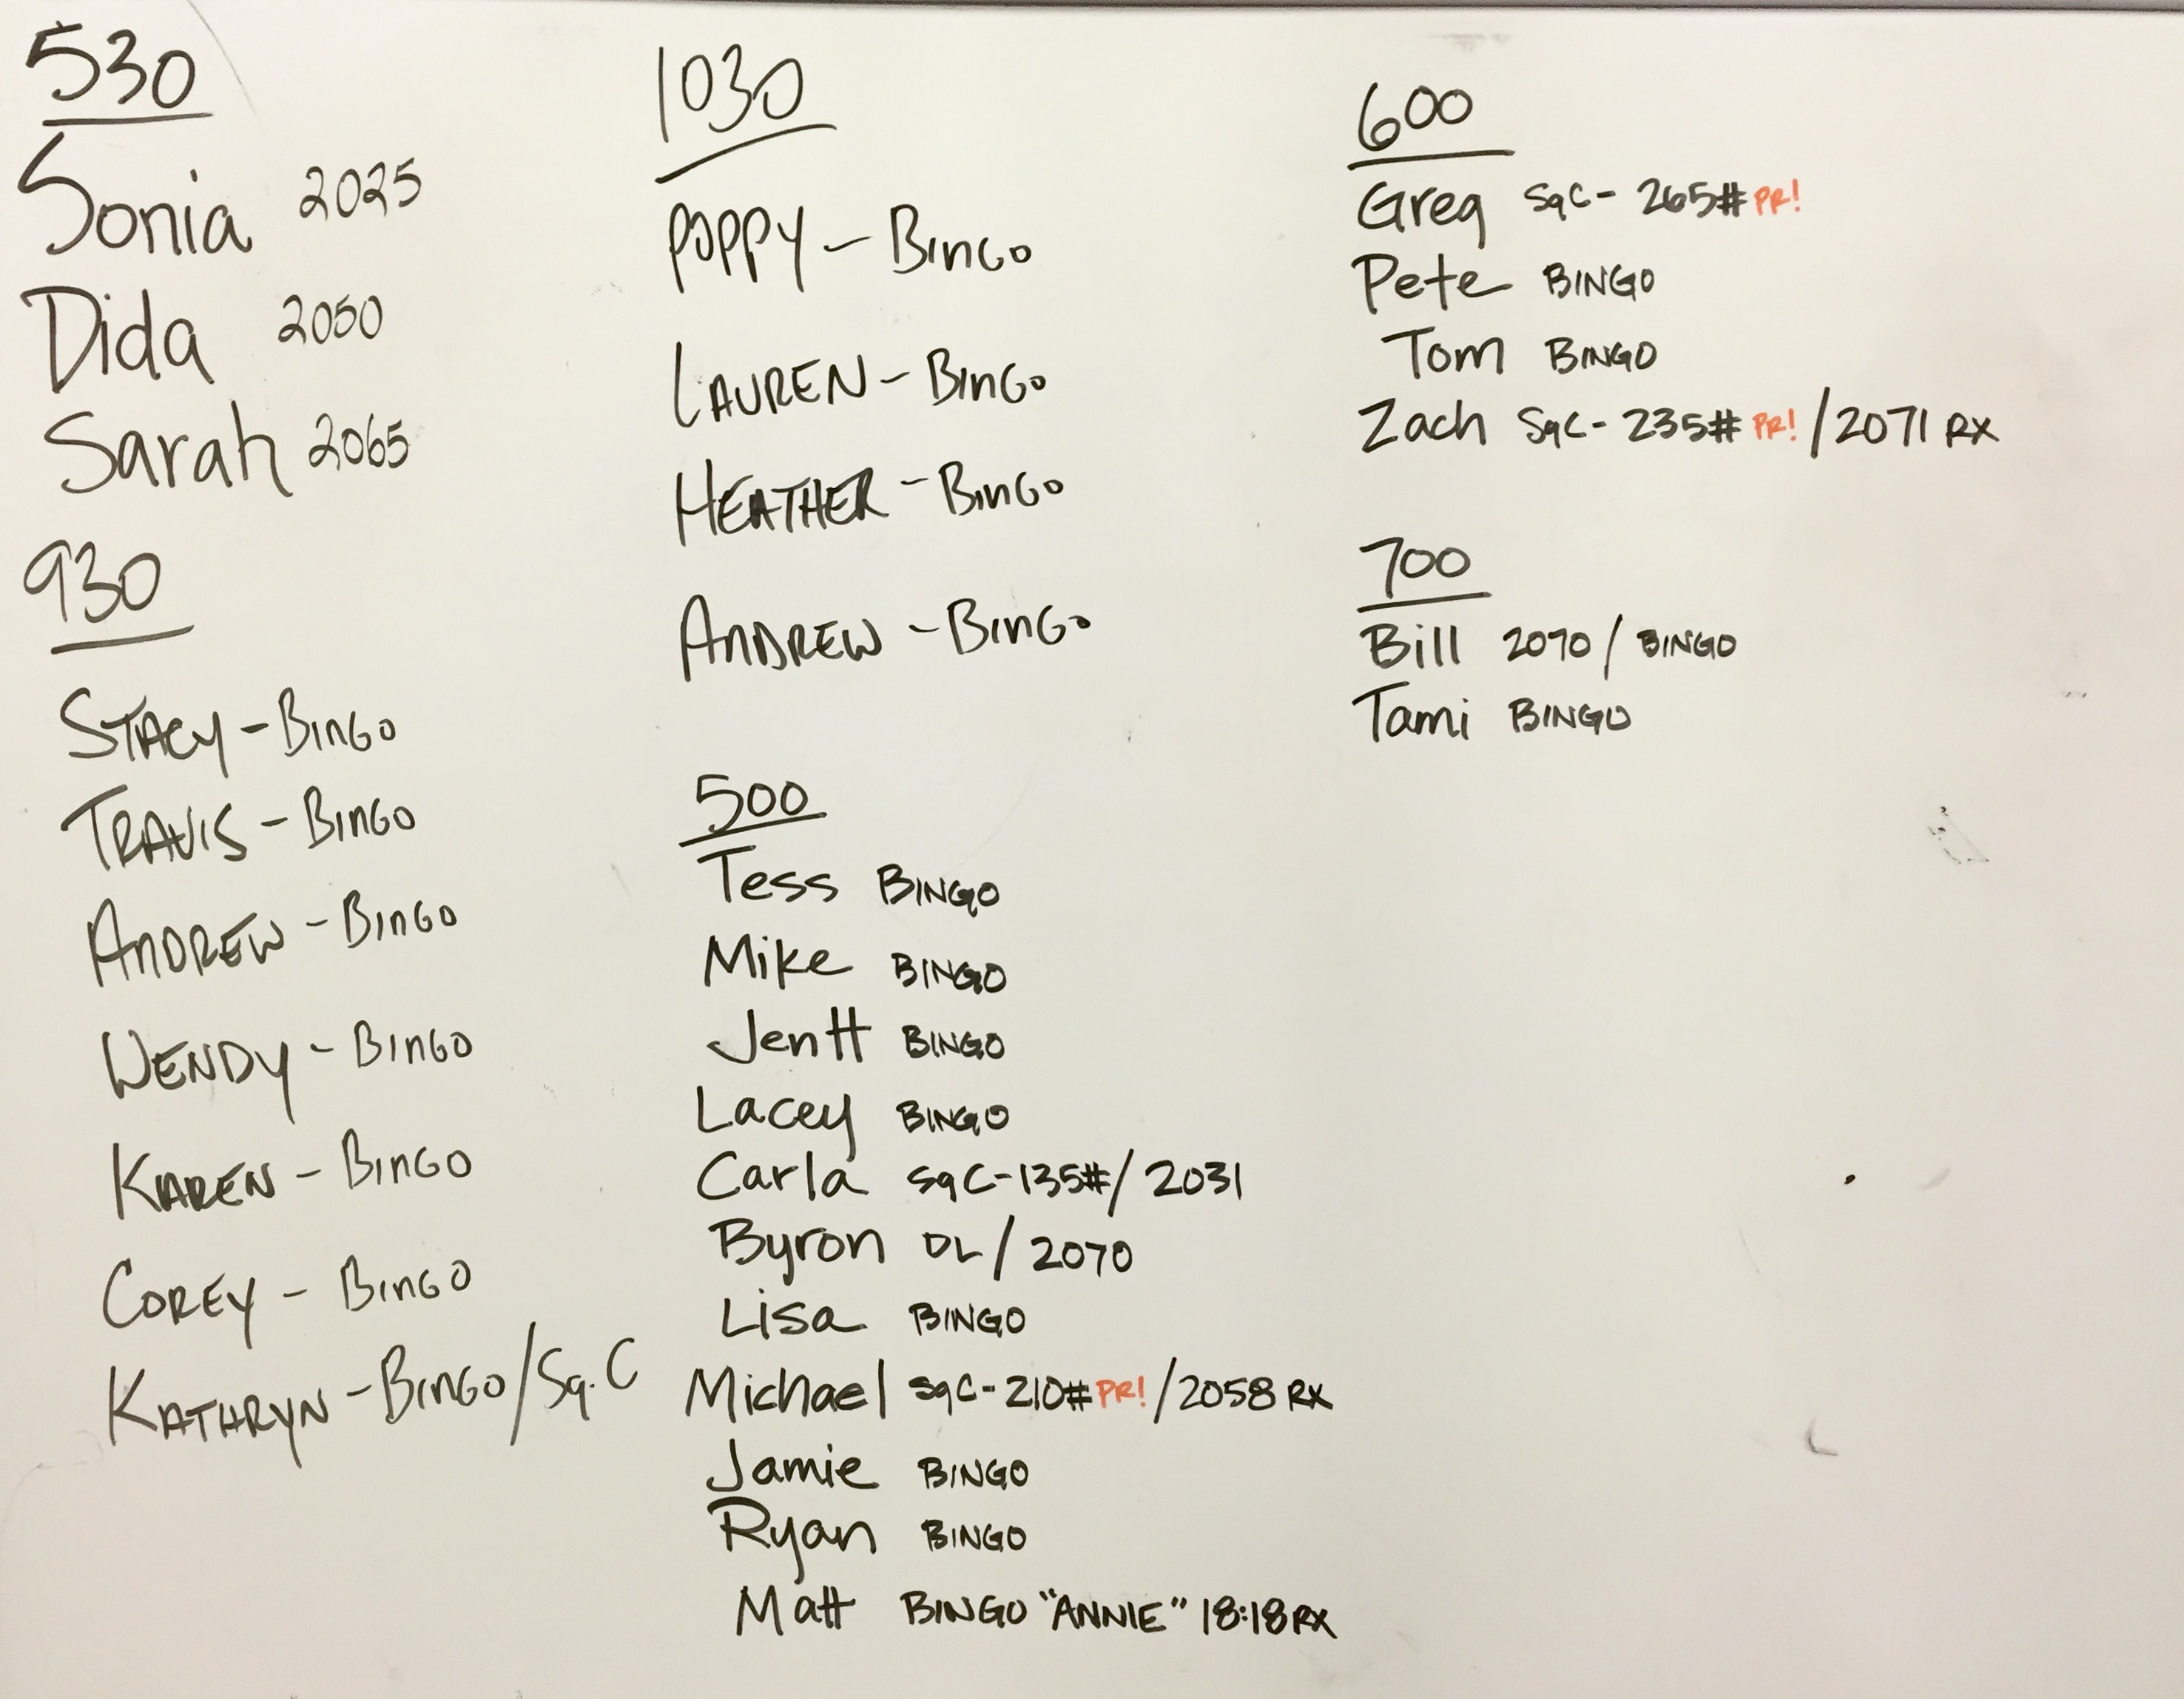 530
Sonia 2025
Dida 2050
Sarah 2065
930
STACY - BINGO
TRAVIS - BINGO
ANDREW - BINGO
WENDY - BINGO
KAREN - BINGO
COREY - BINGO
KATHRYN - BINGO/Sq.C
1030
POPPY - BINGO
LAUREN - BINGO
HEATHER - BINGO
ANDREW - BINGO
500
Tess BINGO
Mike BINGO
Jen H BINGO
Lacey BINGO
Carla SqC-135#/2031
Byron DL/2070
Lisa BINGO
Michael SqC-210# PR!/2058 RX
Jamie BINGO
Ryan BINGO
Matt BINGO "ANNIE" 18:18 RX
600
Greg SqC-265# PR!
Pete BINGO
Tom BINGO
Zach SqC-235# PR!/2071 RX
700
Bill 2070/BINGO
Tami BINGO